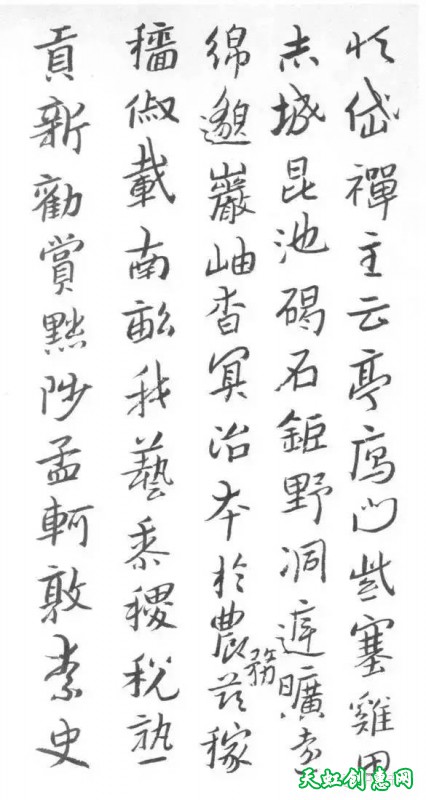 恒岱禪主云亭雁門紫塞雞田
赤城昆池碣石鉅野洞庭曠遠
綿邈巖岫杳冥治本於農務茲稼
穡俶載南畝我藝黍稷稅熟
貢新勸賞黜陟孟軻敦素史
天虹创意网